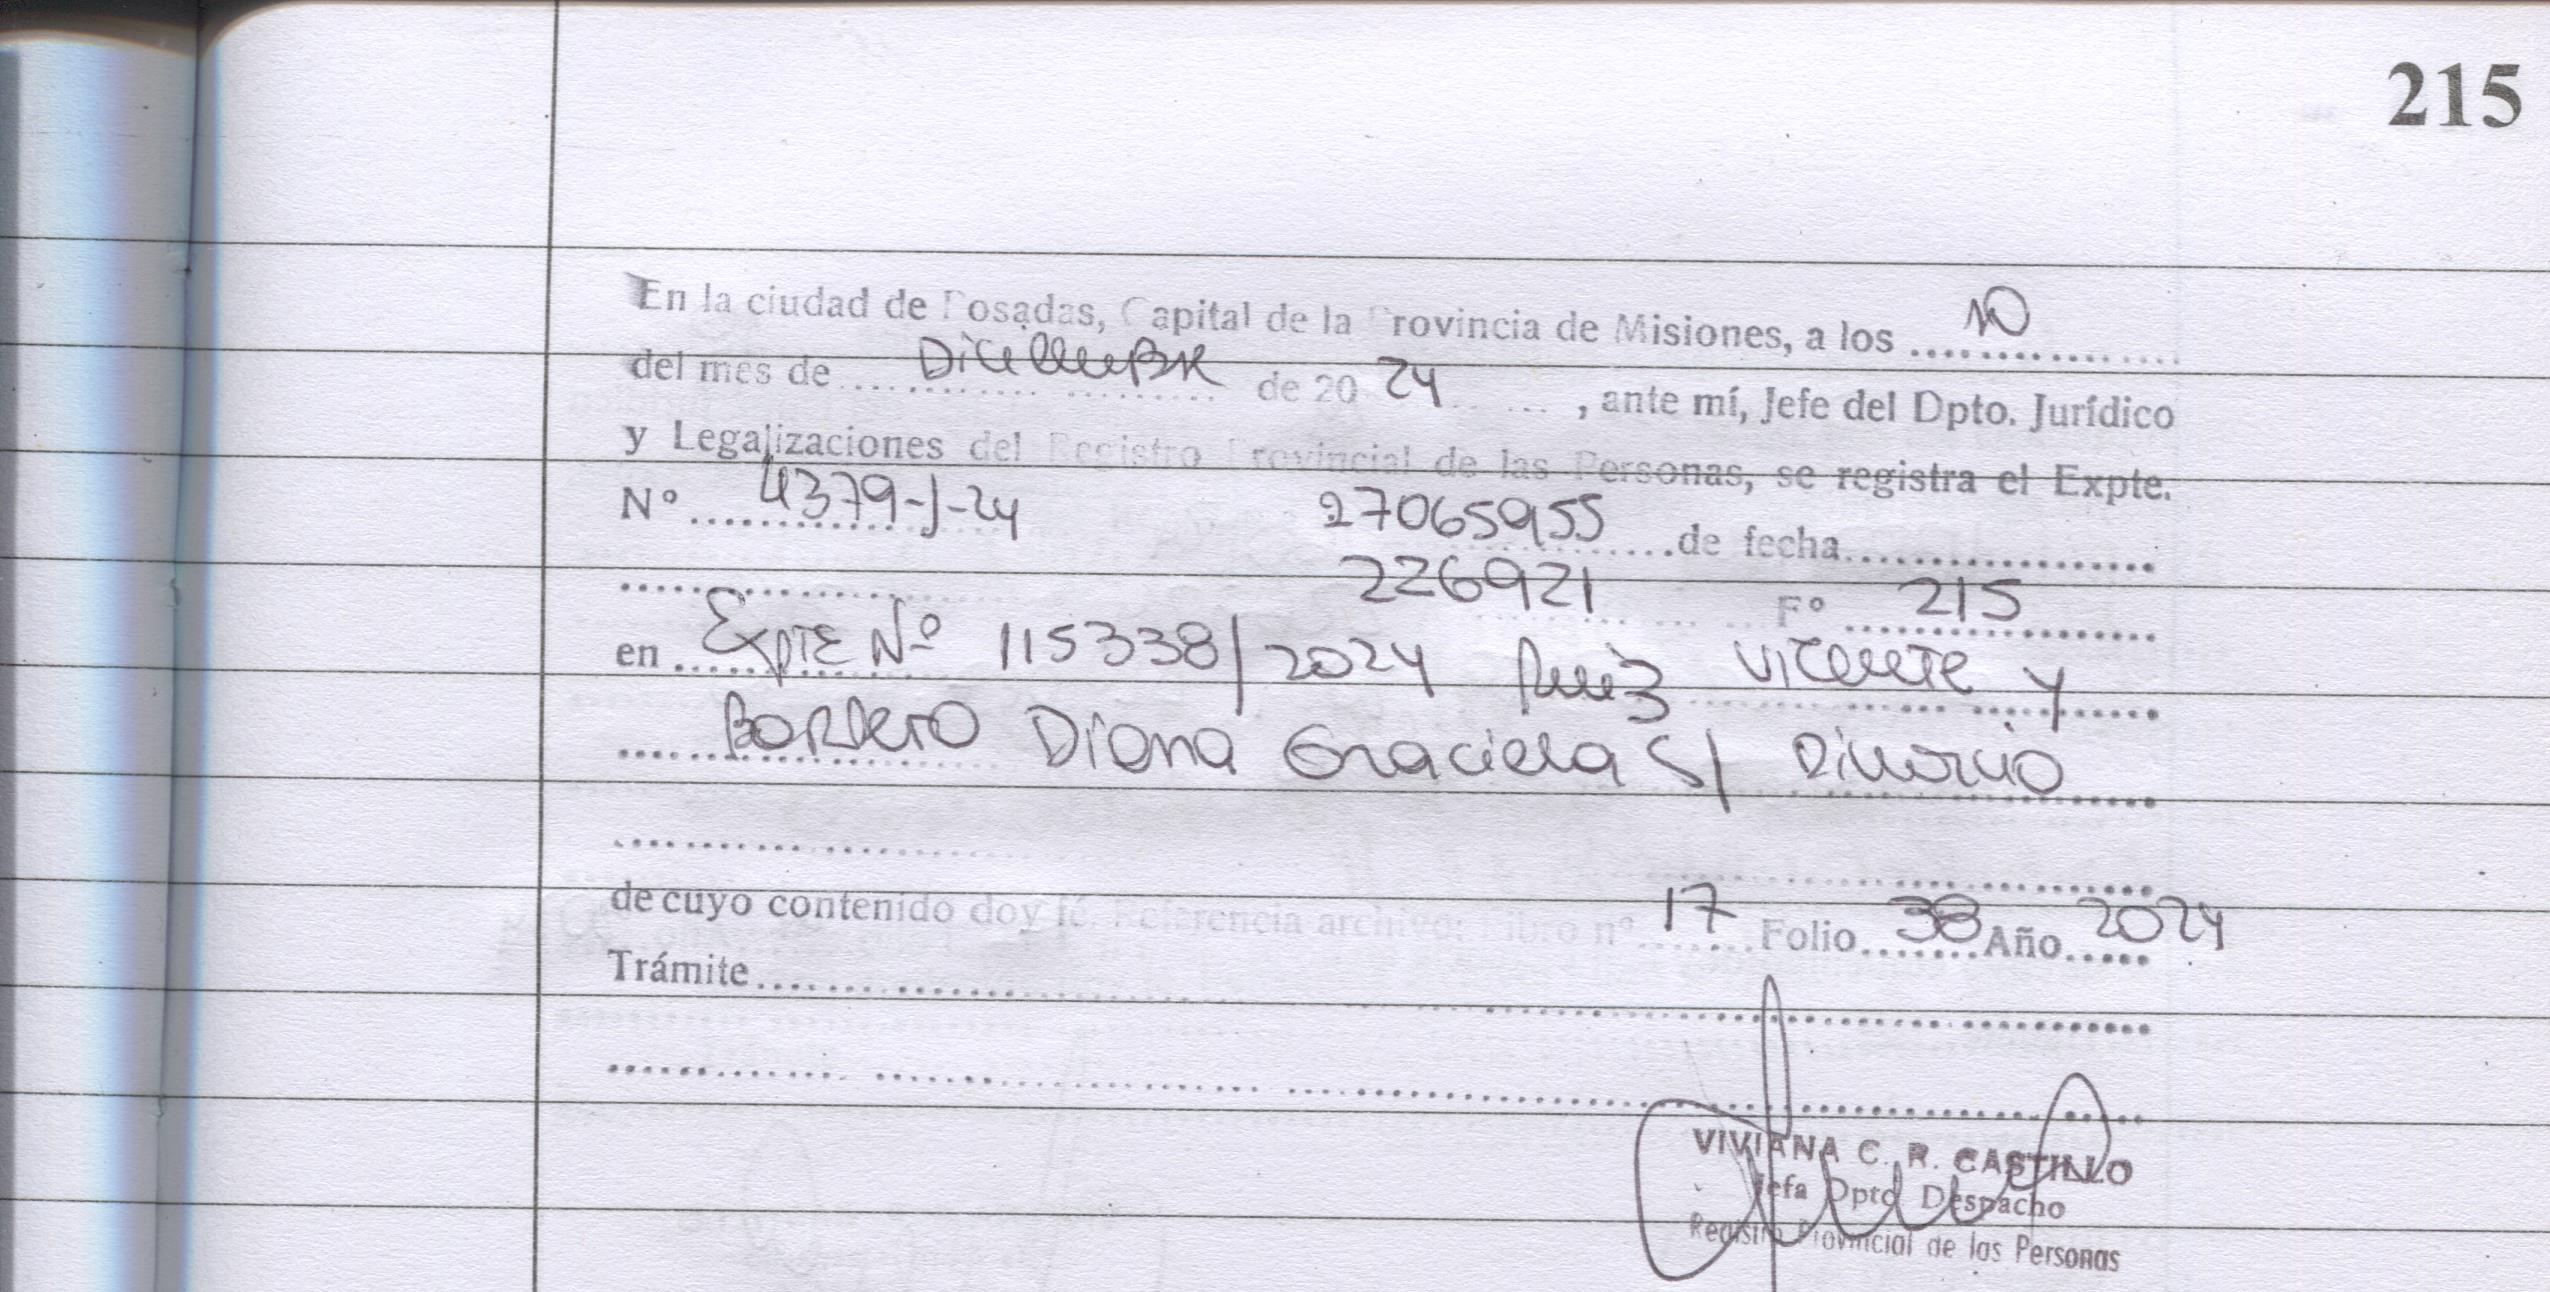 215
En la ciudad de Posadas, Capital de la Provincia de Misiones, a los 10
del mes de Diciembre de 20 24, ante mí, Jefe del Dpto. Jurídico
y Legalizaciones del Registro Provincial de las Personas, se registra el Expte.
Nº 4379-J-24 27065955 de fecha
226921 Fº 215
en Expte Nº 115338/2024 Ruiz Vicente y
Bordero Diana Graciela S/ Divorcio
de cuyo contenido doy fé. Referencia archivo: Libro nº 17 Folio 38 Año 2024
Trámite
VIVIANA C. R. CASTILLO
Jefa Dpto Despacho
Registro Provincial de las Personas